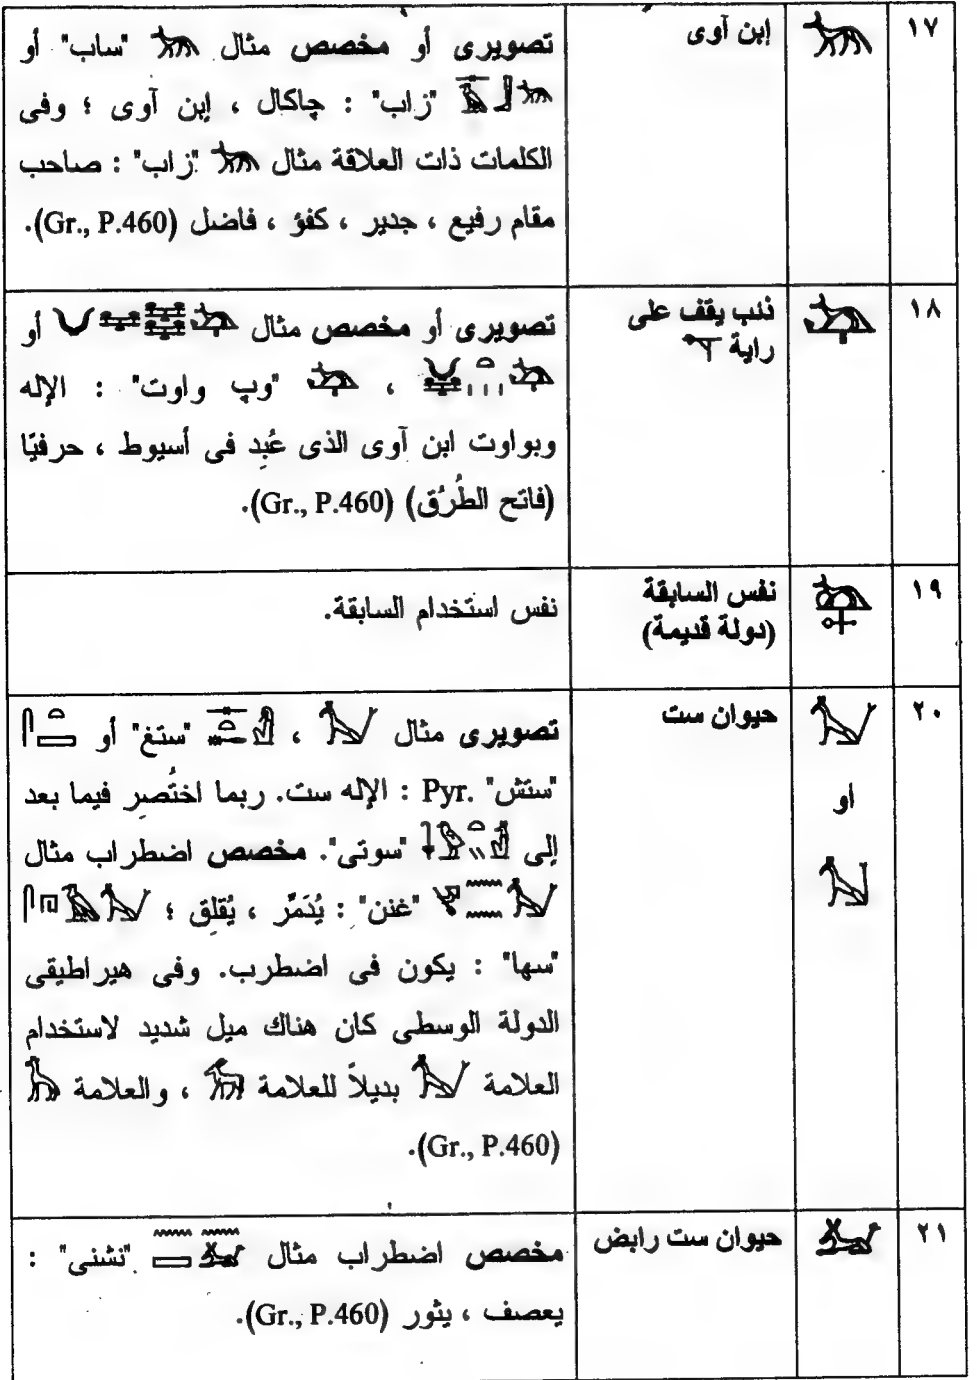 ١٧ إبن آوى تصويرى أو مخصص مثال "ساب" أو
"زاب" : چاكال ، إبن آوى ؛ وفى
الكلمات ذات العلاقة مثال "زاب" : صاحب
مقام رفيع ، جدير ، كفؤ ، فاضل (Gr., P.460).
١٨ ذئب يقف على تصويرى أو مخصص مثال أو
راية ، "وپ واوت" : الإله
وبواوت ابن آوى الذى عُبِد فى أسيوط ، حرفيًا
(فاتح الطُرُق) (Gr., P.460).
١٩ نفس السابقة نفس استخدام السابقة.
(دولة قديمة)
٢٠ حيوان ست تصويرى مثال ، "ستغ" أو
أو "ستش" Pyr. : الإله ست. ربما اختُصِر فيما بعد
إلى "سوتى". مخصص اضطراب مثال
"غنن" : يُدَمَّر ، يُقلِق ؛
"سها" : يكون فى اضطرب. وفى هيراطيقى
الدولة الوسطى كان هناك ميل شديد لاستخدام
العلامة بديلاً للعلامة ، والعلامة
(Gr., P.460).
٢١ حيوان ست رابض مخصص اضطراب مثال "نشنى" :
يعصف ، يثور (Gr., P.460).